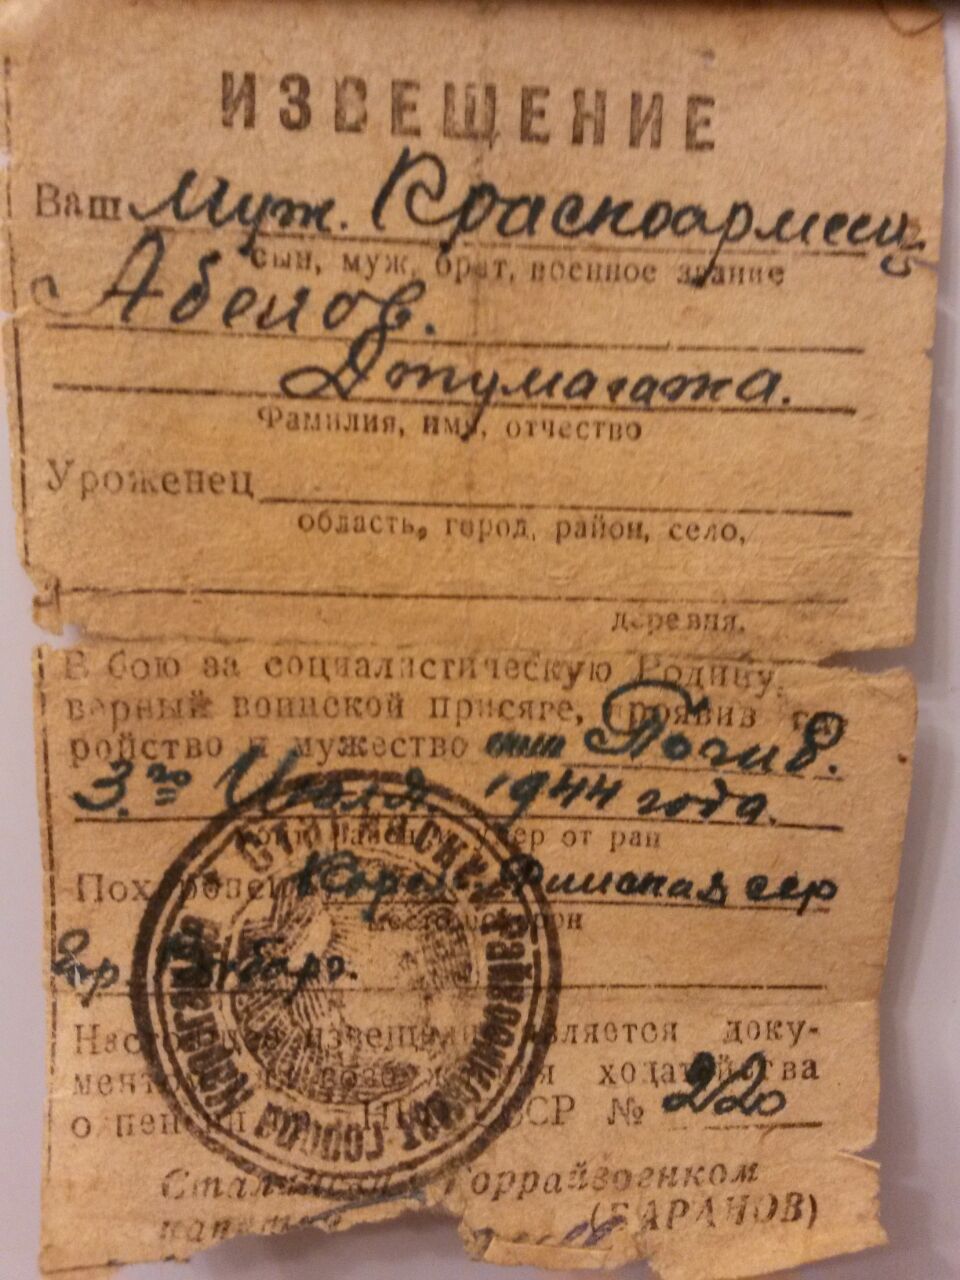 ИЗВЕЩЕНИЕ
Ваш муж. Красноармеец
сын, муж, брат, военное звание
Абенов.
Джумагажа.
Фамилия, имя, отчество
Уроженец
область, город, район, село,
деревня.
В бою за социалистическую Родину,
верный воинской присяге, проявив ге-
ройство и мужество Погиб.
3.го Июля 1944 года.
умер от ран
Похоронен Карел. Финская сср
место похорон
гор.
Настоящее извещение является доку-
ментом для возбуждения ходатайства
о пенсии СССР № 220
Сталинский Горрайвоенком
капитан (БАРАНОВ)
Сталинский Райвоенкомат города Караганды